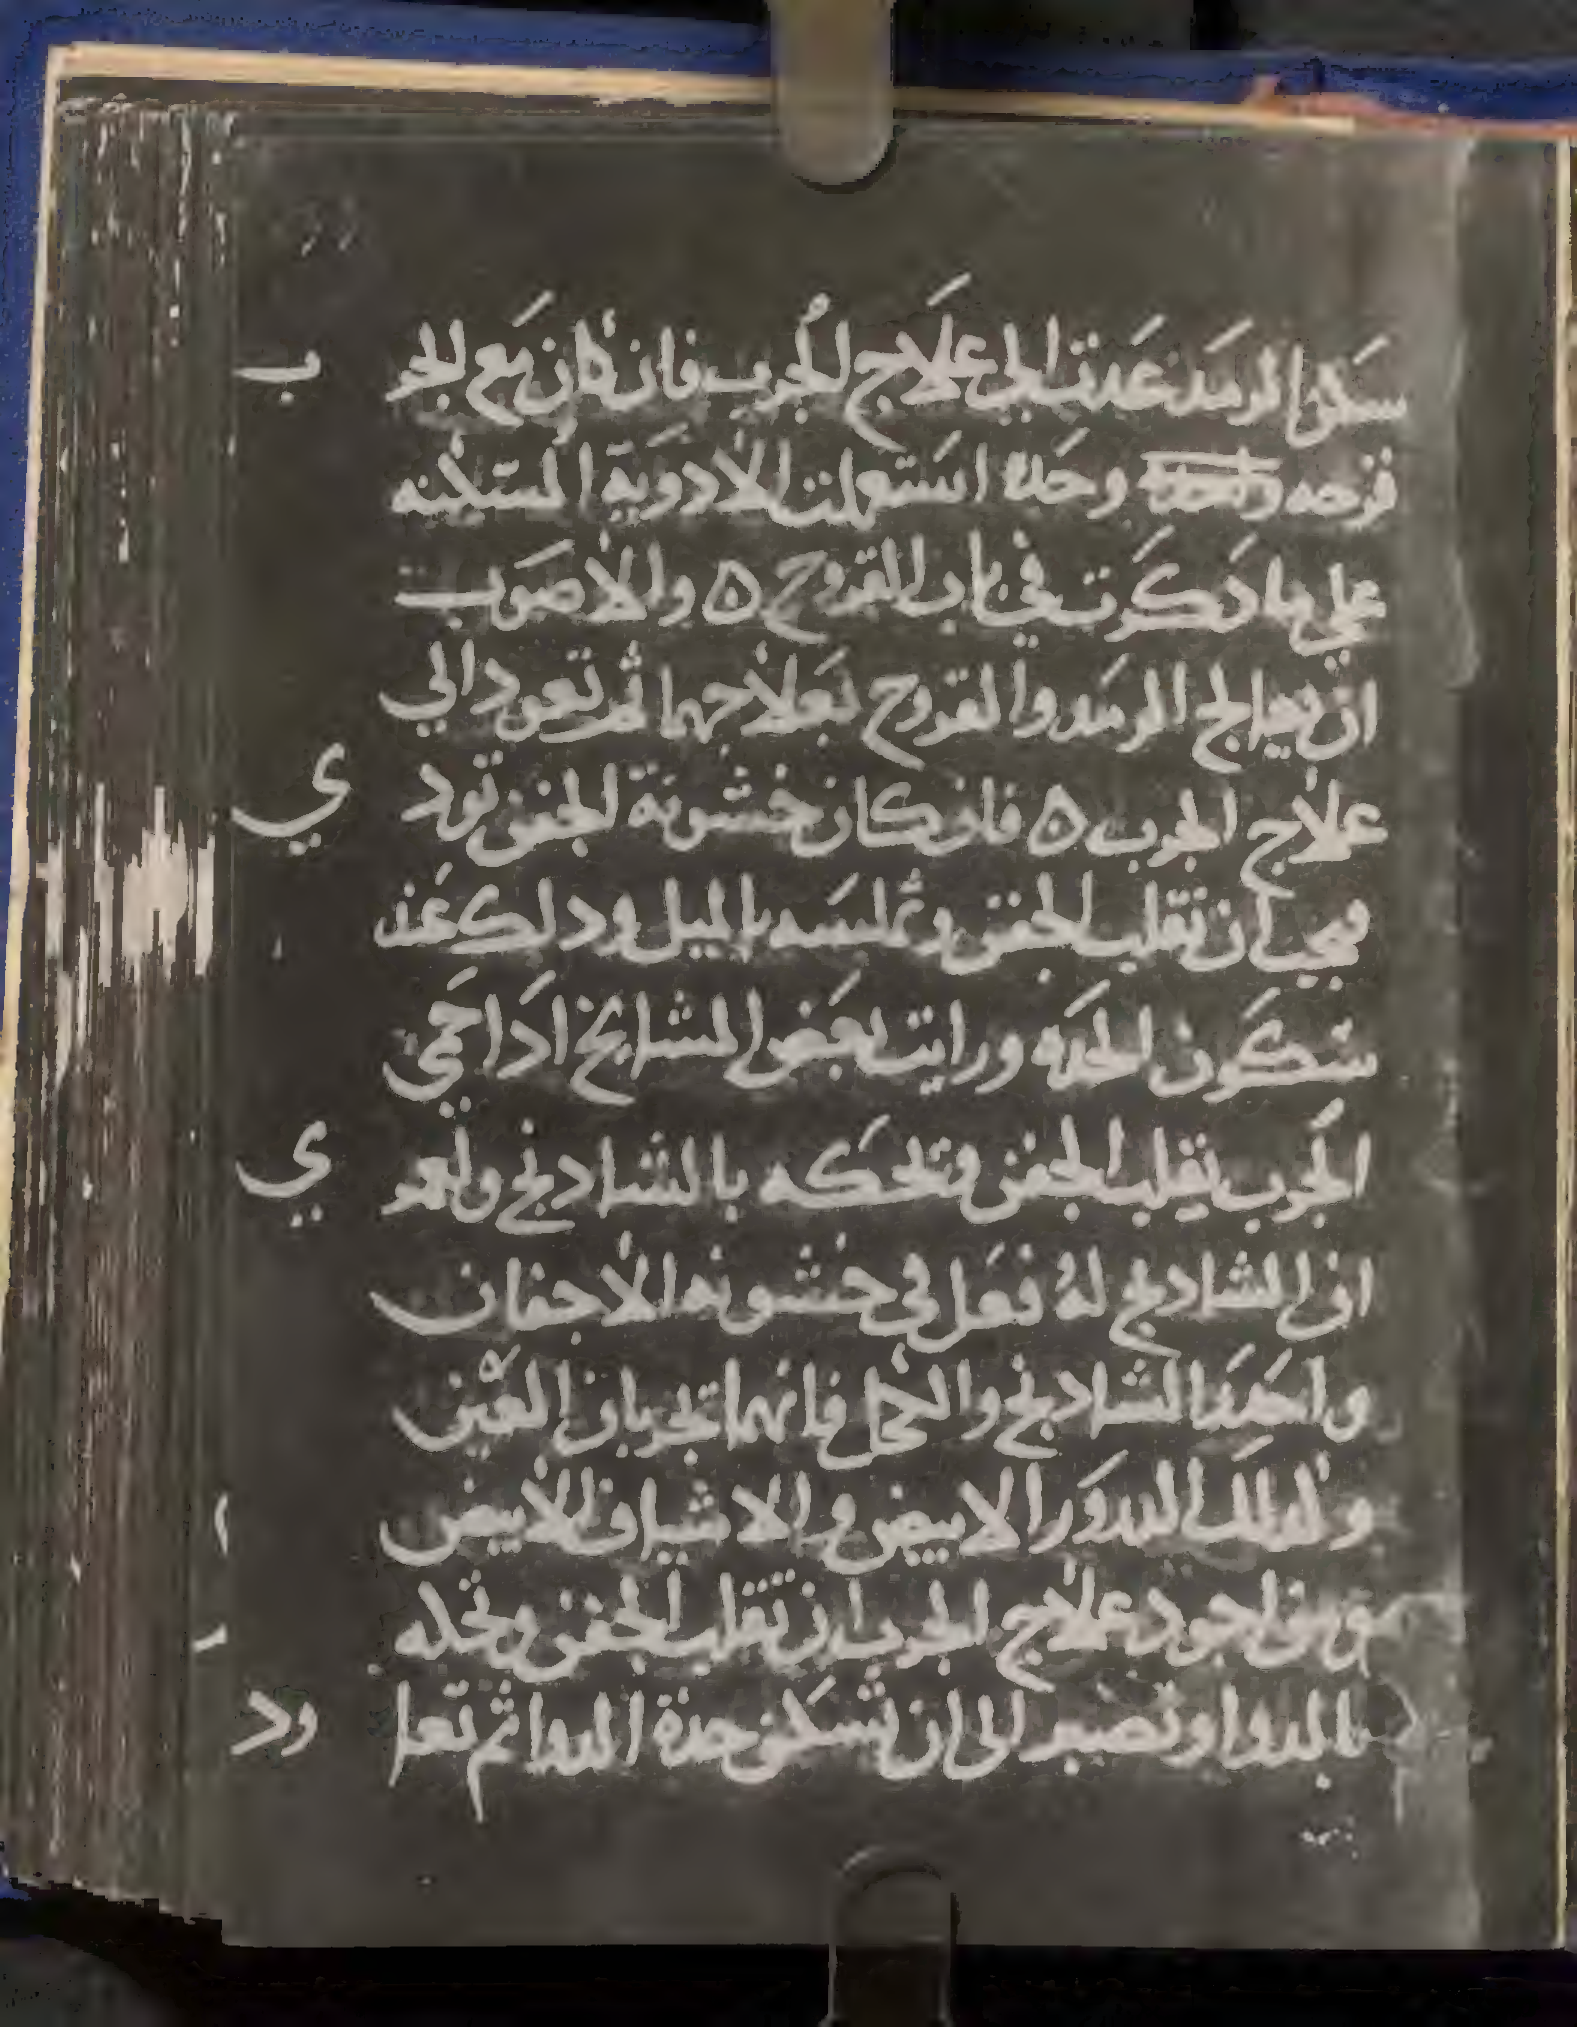 سكن الرمد عدت الى علاج الجرب فان كان مع الجر ب
قرحه وحده استعملت الادوية المسكنه
علي ما ذكرت في باب القروح ه والاصوب
ان يعالج الرمد والقروح بعلاجهما ثم تعود الي
علاج الجرب ه فان كان خشونة الجفن تود ي
فيجب ان تقلب الجفن وتملسه بالميل ودلك عند
سكون الحده ورايت بعض المشايخ ادا حمي
الجرب يقلب الجفن وتحكه بالشادنج ولعمر ي
ان الشادنج له فعل في خشونه الاجفان
واحدر الشادنج والكحل فانهما تجربان العين
ولدلك الدرور الابيض والاشياف الابيض
ومن اجود علاج الجرب ان تقلب الجفن وتحله
بالدوا وتصبر الى ان تسكن حدة الدوا ثم تعا ود